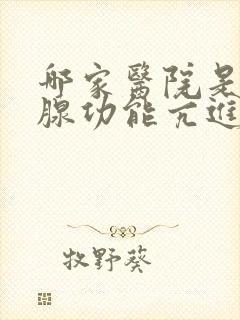 哪家醫院是
腺功能亢進
牧野葵